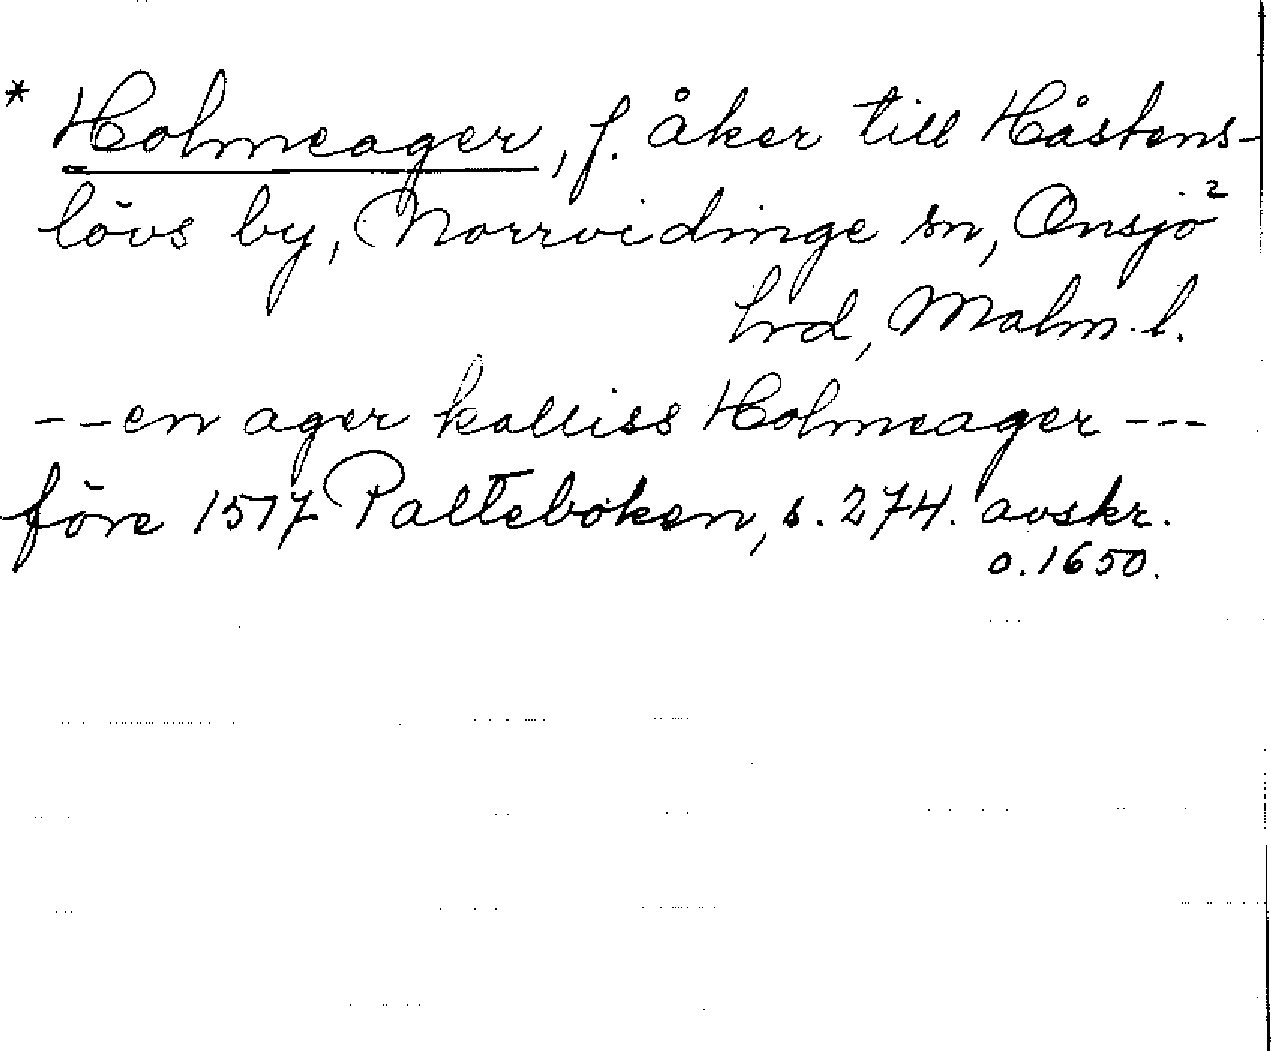 * Holmeager, f. åker till Håstens-
lövs by, Norrvidinge sn, Onsjö²
hrd, Malm. l.
--en ager kalliss Holmeager---
före 1517 Palteboken, s. 274. avskr.
o. 1650.